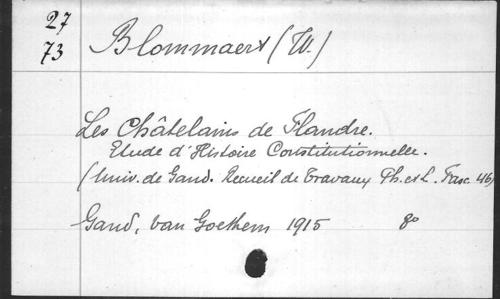 27
73
Blommaert (W.)
Les Châtelains de Flandre.
Etude d'Histoire Constitutionnelle.
(Univ. de Gand. Recueil de Travaux Ph. et L. Fasc. 46)
Gand, van Goethem 1915 8º